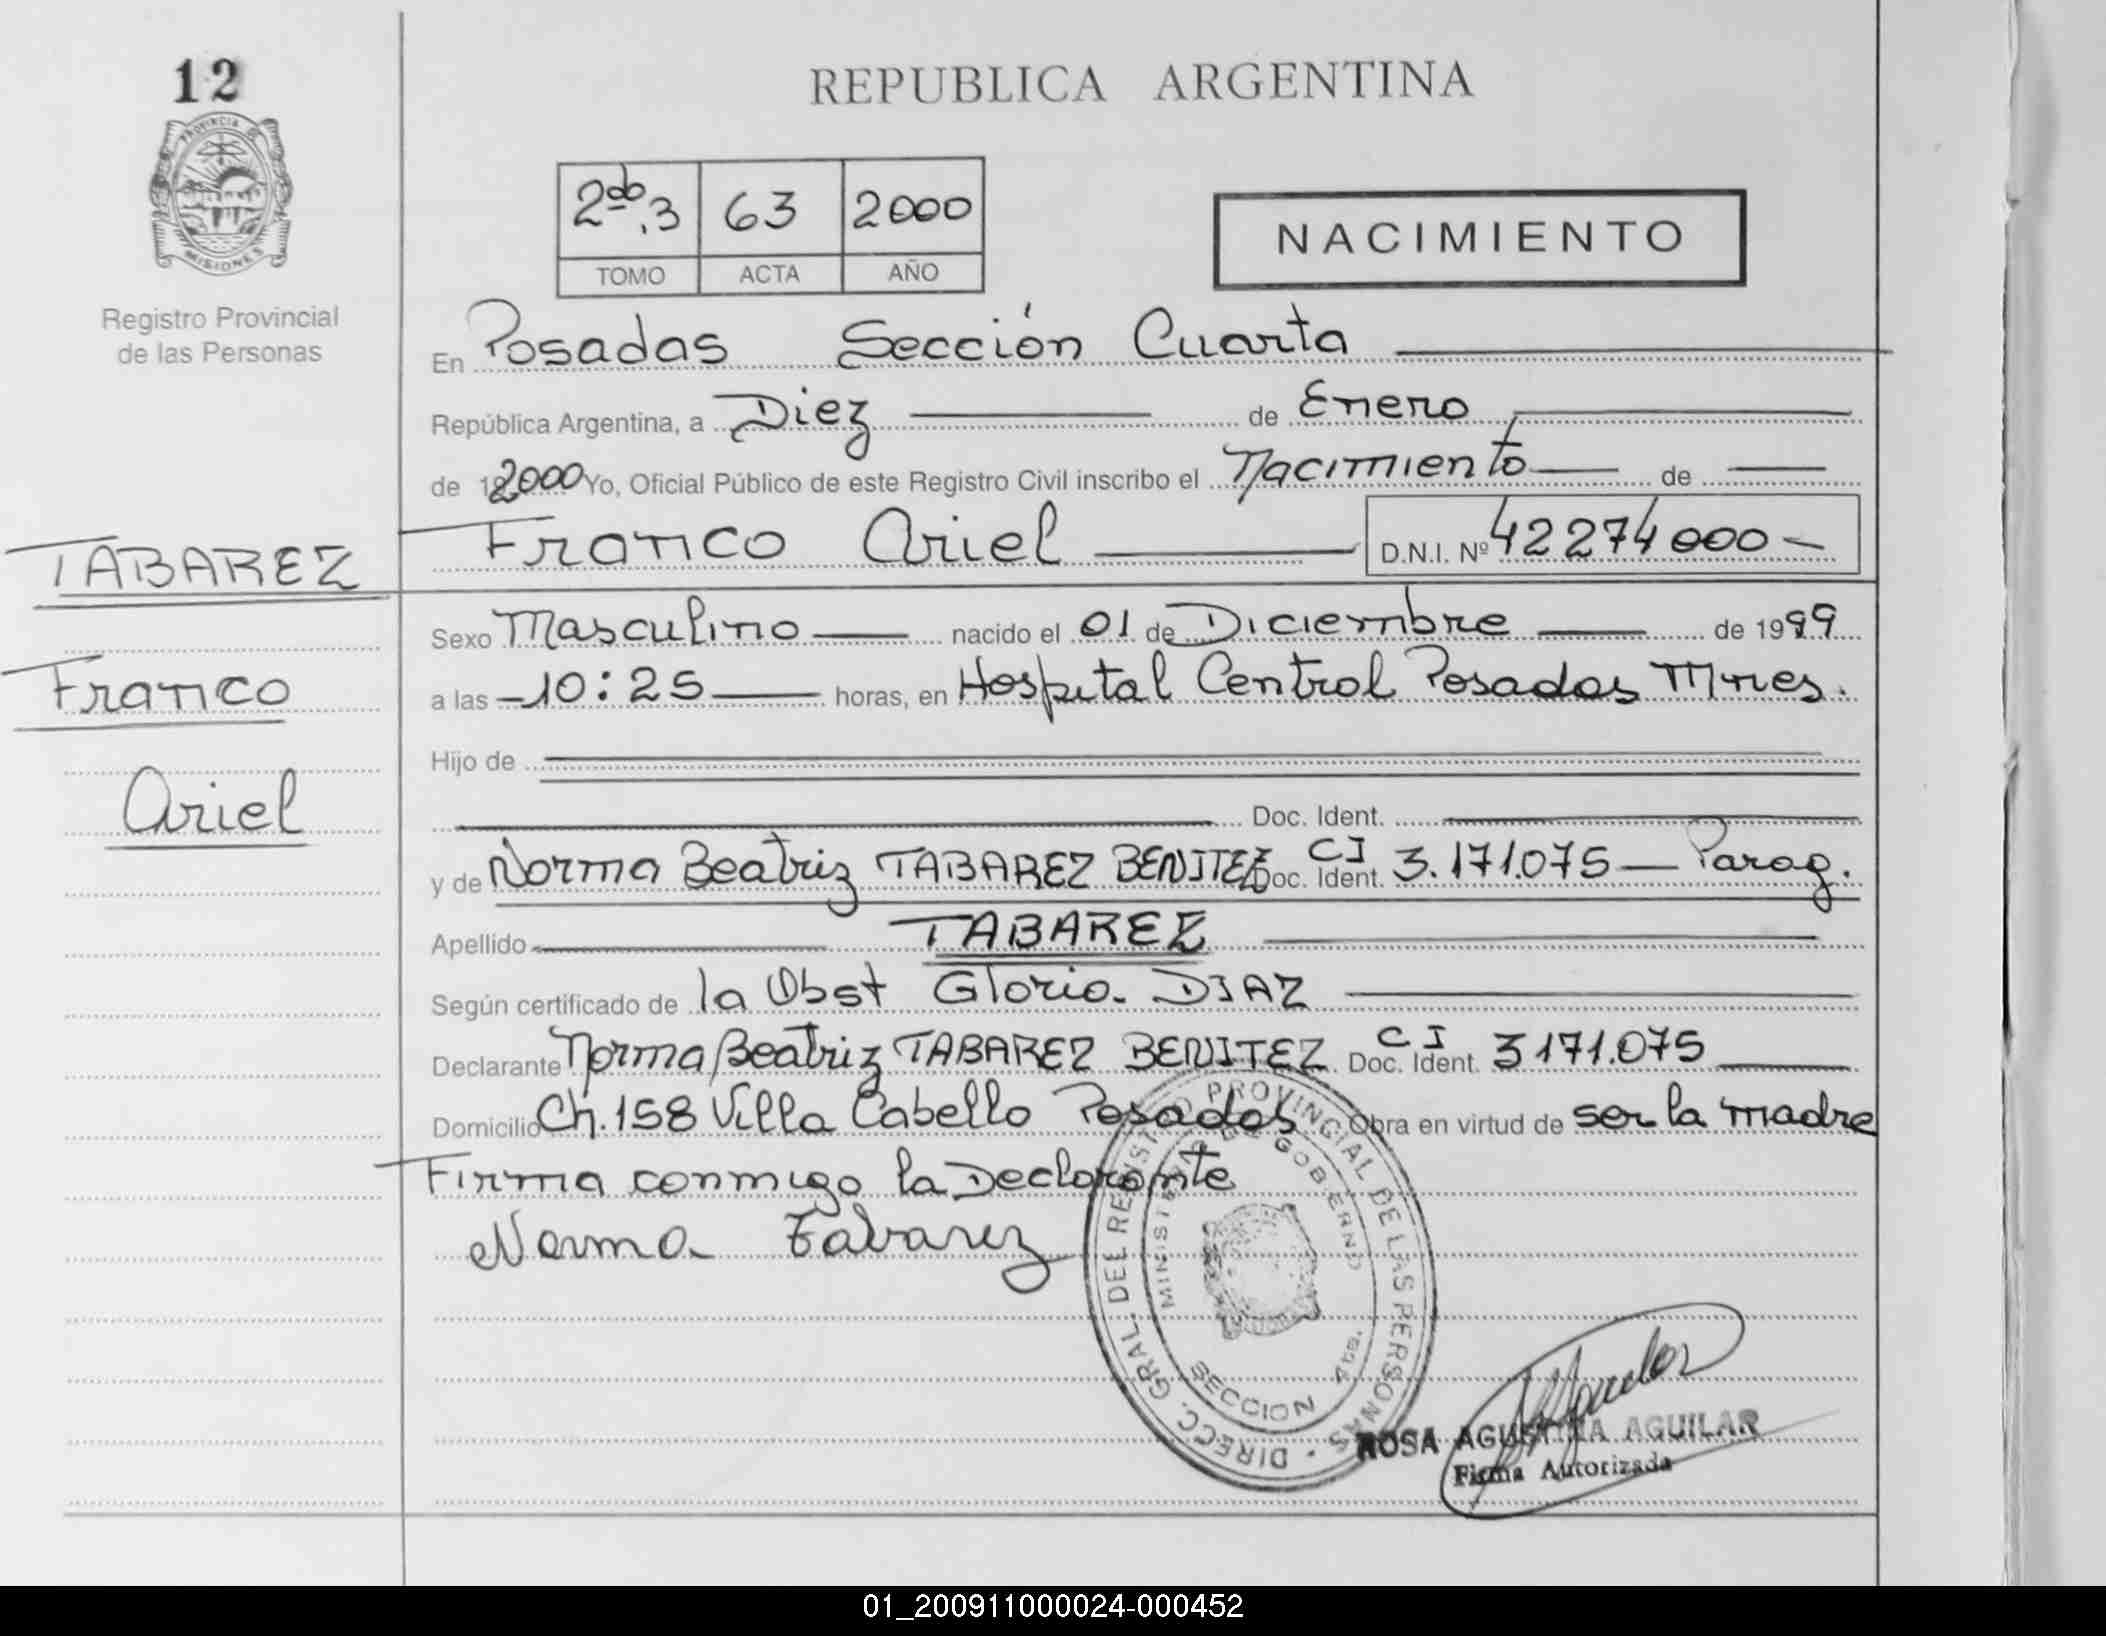 12
PROVINCIA DE
MISIONES
Registro Provincial
de las Personas
REPUBLICA ARGENTINA
2do.3 63 2000
TOMO ACTA AÑO
NACIMIENTO
En Posadas Sección Cuarta
República Argentina, a Diez de Enero
de 2000 Yo, Oficial Público de este Registro Civil inscribo el Nacimiento de
Franco Ariel D.N.I. Nº 42274000
TABAREZ
Franco
Ariel
Sexo Masculino nacido el 01 de Diciembre de 1999
a las 10:25 horas, en Hospital Central Posadas Mnes.
Hijo de
Doc. Ident.
y de Norma Beatriz TABAREZ BENITEZ Doc. Ident. CI 3.171.075 Parag.
Apellido TABAREZ
Según certificado de la Obst Gloria DIAZ
Declarante Norma Beatriz TABAREZ BENITEZ Doc. Ident. CI 3171.075
Domicilio Ch. 158 Villa Cabello Posadas Obra en virtud de ser la madre
Firma conmigo la Declarante
Norma Tabarez
DIRECC. GRAL. DEL REGISTRO PROVINCIAL DE LAS PERSONAS
MINISTERIO DE GOBIERNO
SECCION 4ta.
ROSA AGUSTINA AGUILAR
Firma Autorizada
01_200911000024-000452